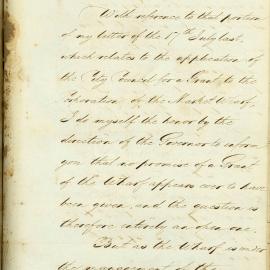 With reference to that portion
of my letter of the 17th July last
which relates to the application of
the City Council for a Grant to the
Corporation of the Market Wharf,
I do myself the honor by the
direction of the Governor to inform
you that no promise of a Grant
of the Wharf appears ever to have
been given, and the question is
therefore entirely an open one.
But as the Wharf is under
the management of the